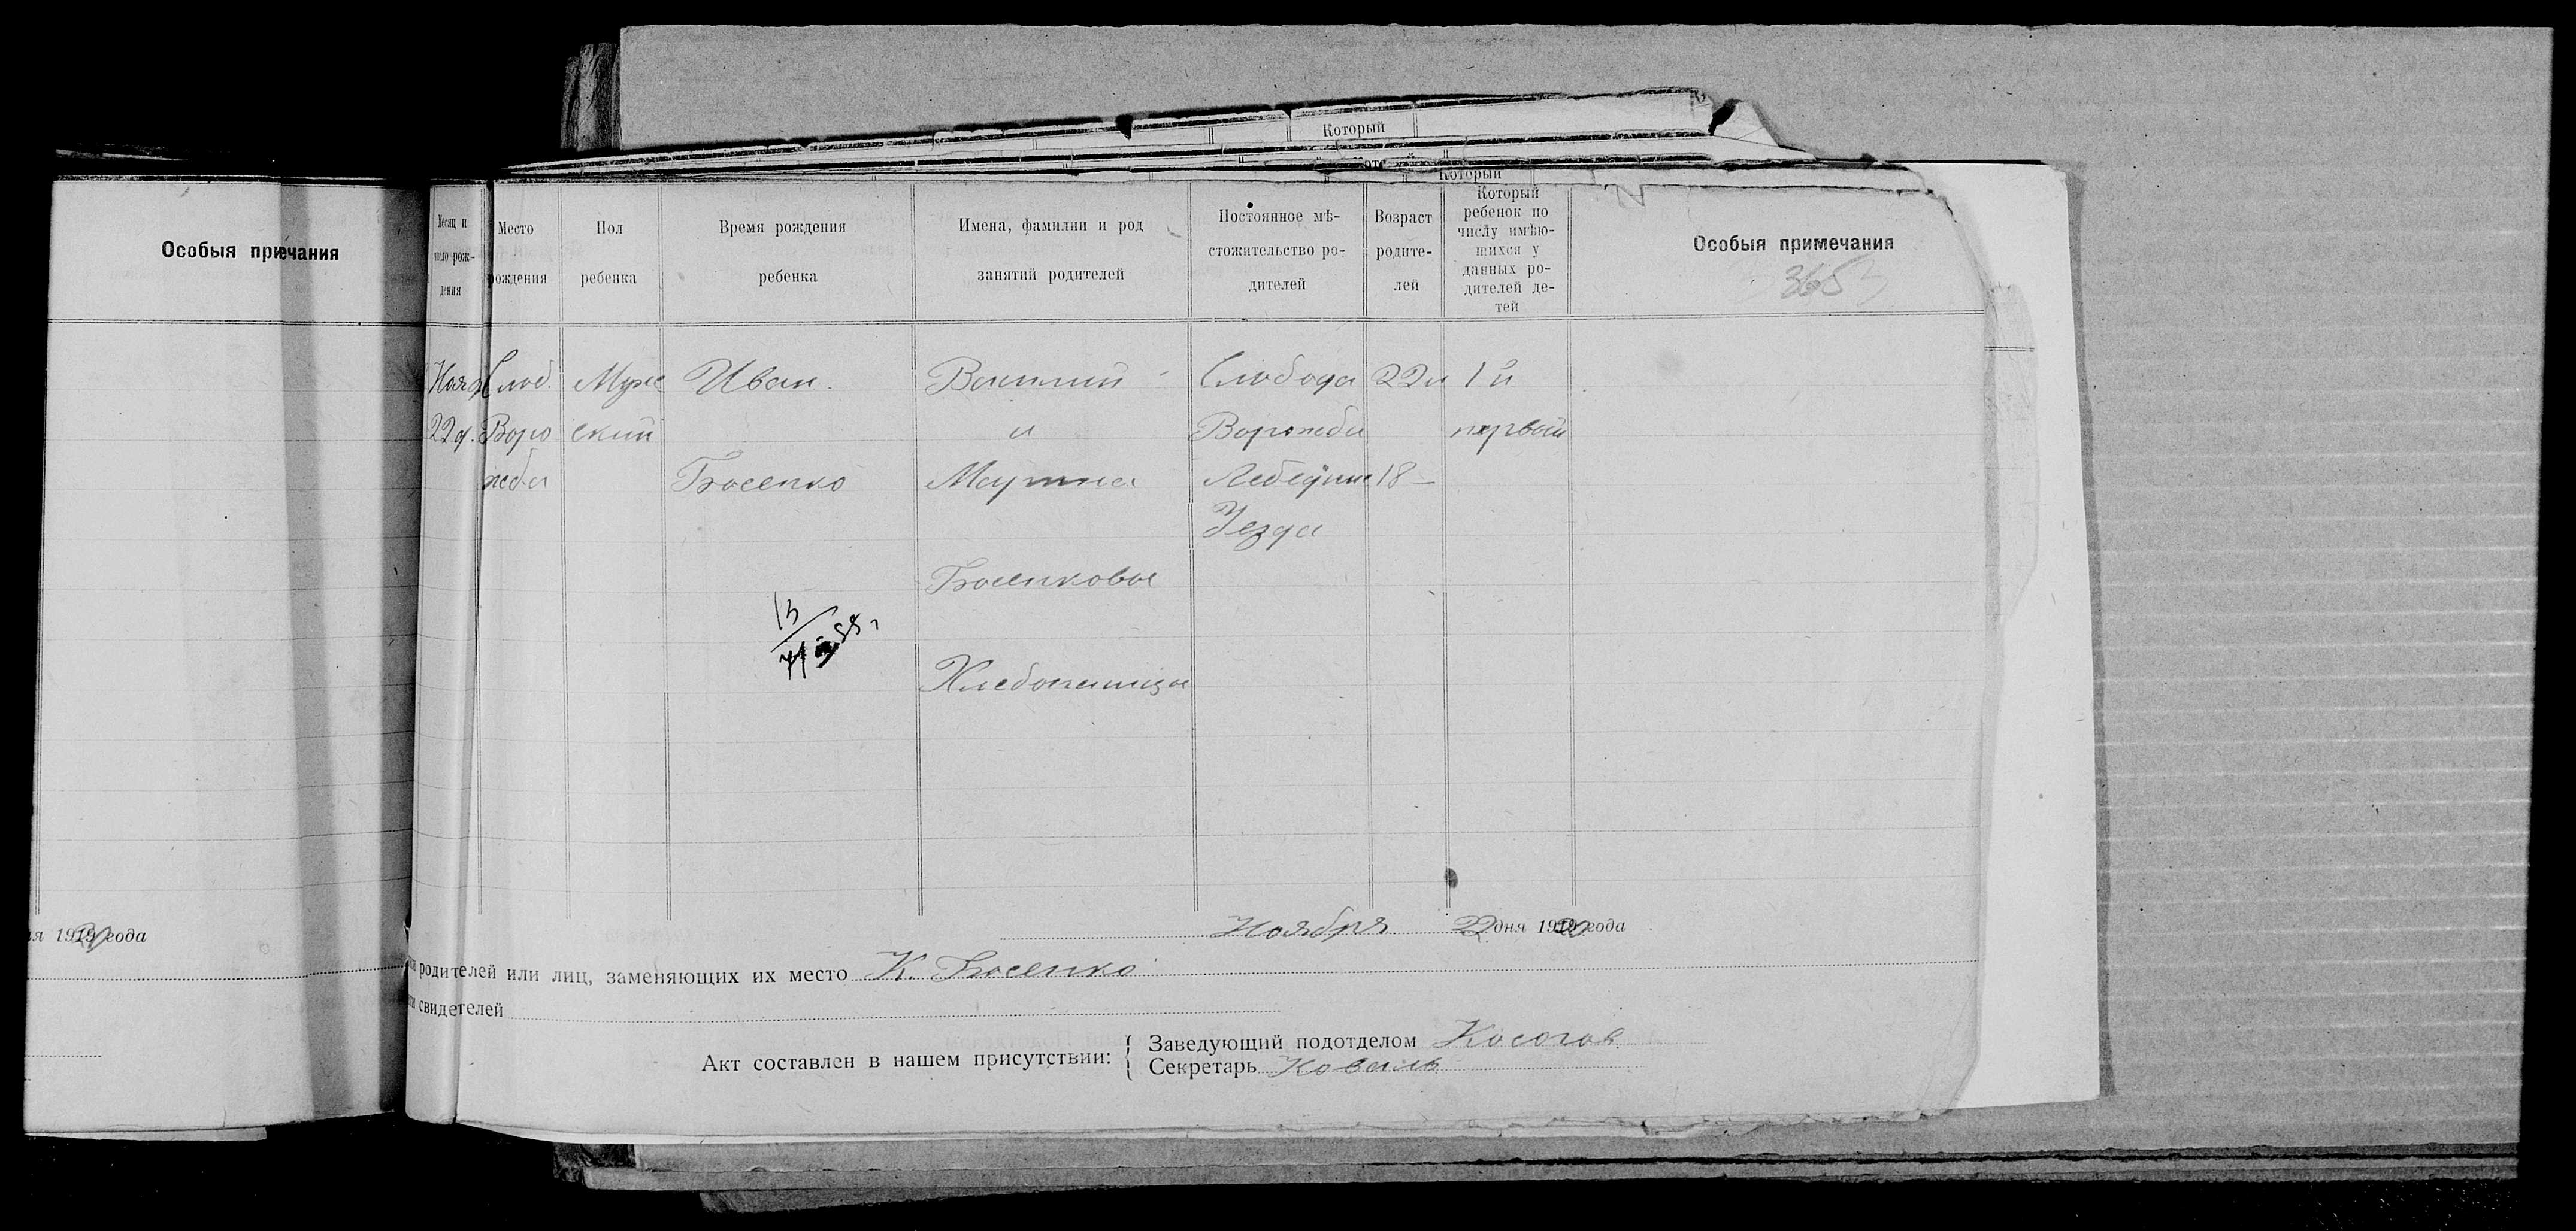 Особыя причания
Который
Который
Месяц и число рождения
Место рождения
Пол ребенка
Время рождения ребенка
Имена, фамилии и род занятий родителей
Постоянное мѣ-
стожительство ро-
дителей
Возраст
родите-
лей
Который
ребенок по
числу имѣю-
щихся у
данных ро-
дителей де-
тей
Особыя примечания
Нояб
22д.
Слоб.
Воро
жба
Муж
ский
Иван.
Босенко
Василий
и
Марина
Босенковы
Хлебопашцы
Слобода
Ворожба
Лебедин
Уезда
22
18
1й
первый
Ноября 22 дня 1920 года
ия 1919 года
родителей или лиц, заменяющих их место К. Босенко
свидетелей
Акт составлен в нашем присутствии:
Заведующий подотделом Косогов
Секретарь Коваль